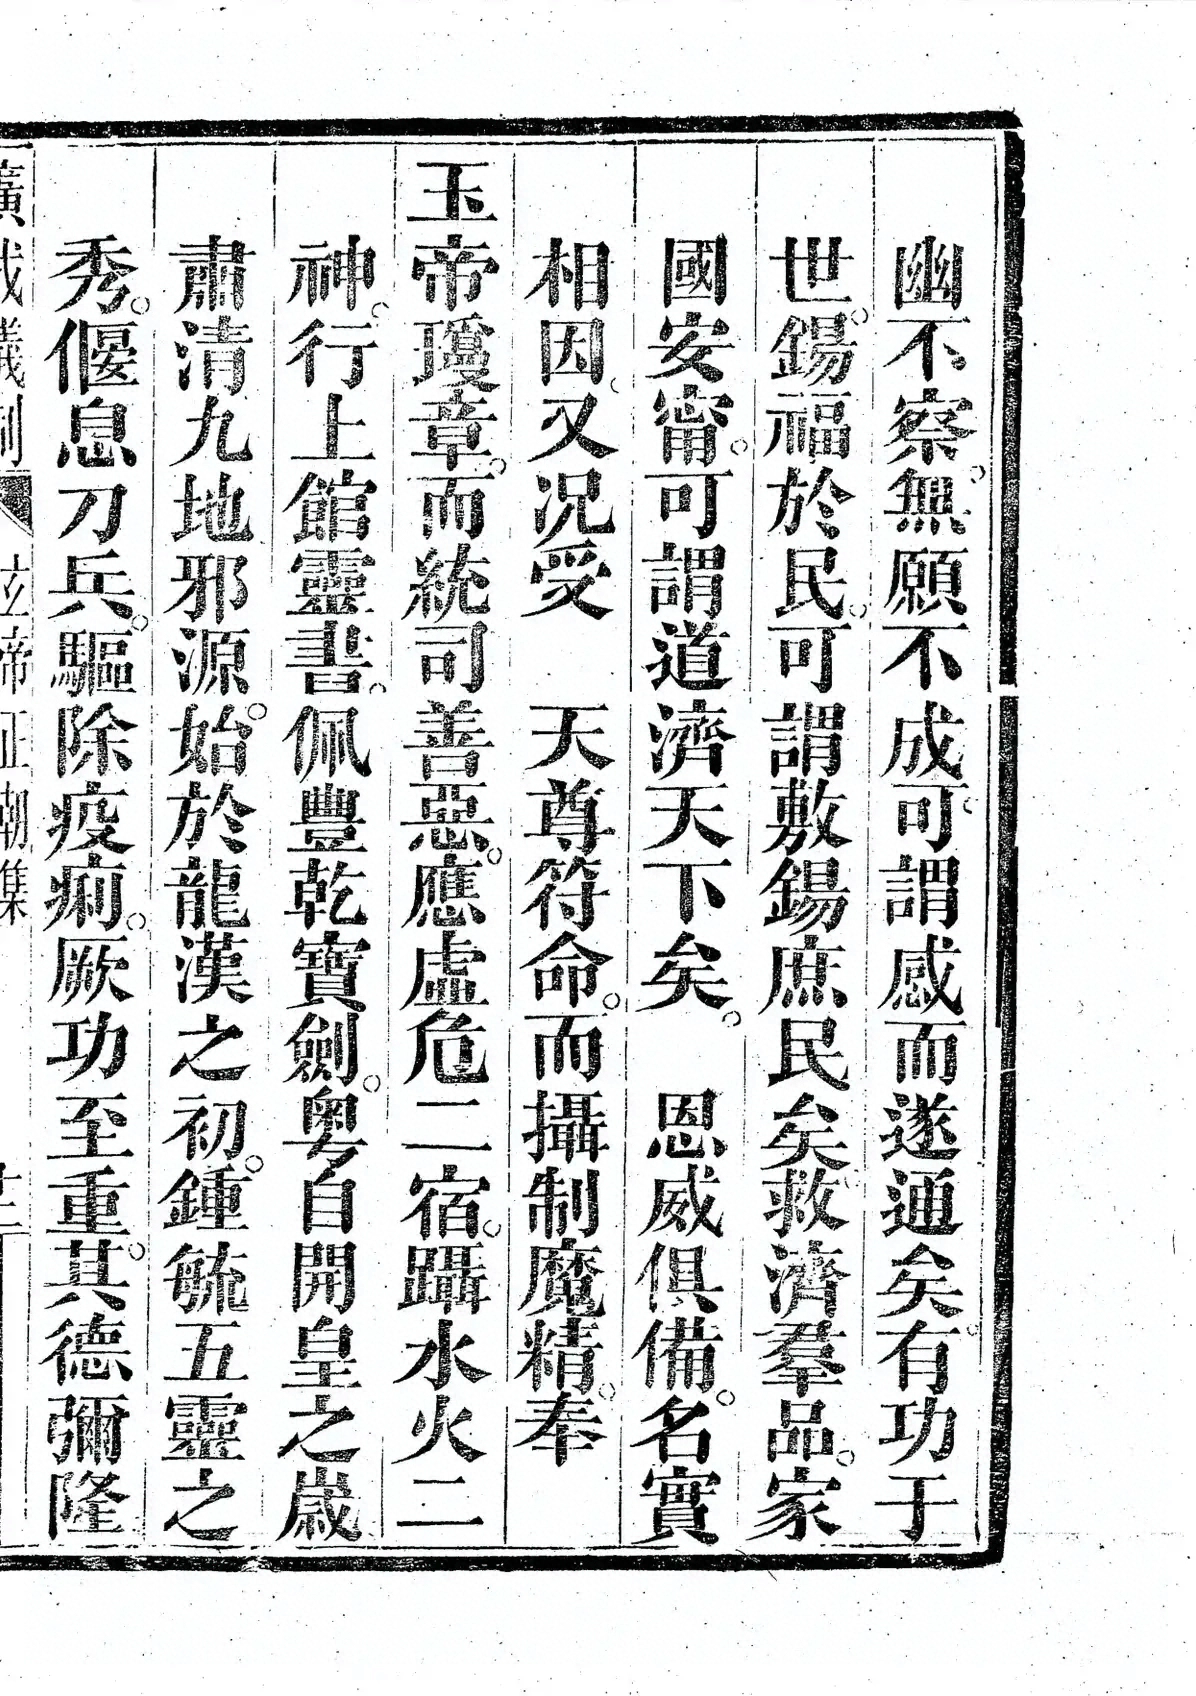 幽不察。無願不成。可謂感而遂通矣。有功于
世。錫福於民。可謂敷錫庶民矣。救濟羣品。家
國安甯。可謂道濟天下矣。　恩威俱備。名實
相因。又況受　天尊符命。而攝制魔精。奉
玉帝瓊章。而統司善惡。應虛危二宿。躡水火二
神。行上館靈書。佩豐乾寶劍。粵自開皇之歲
肅清九地邪源。始於龍漢之初。鍾毓五靈之
秀。偃息刀兵。驅除疫痢。厥功至重。其德彌隆
廣成儀制　玄帝正朝集　十二